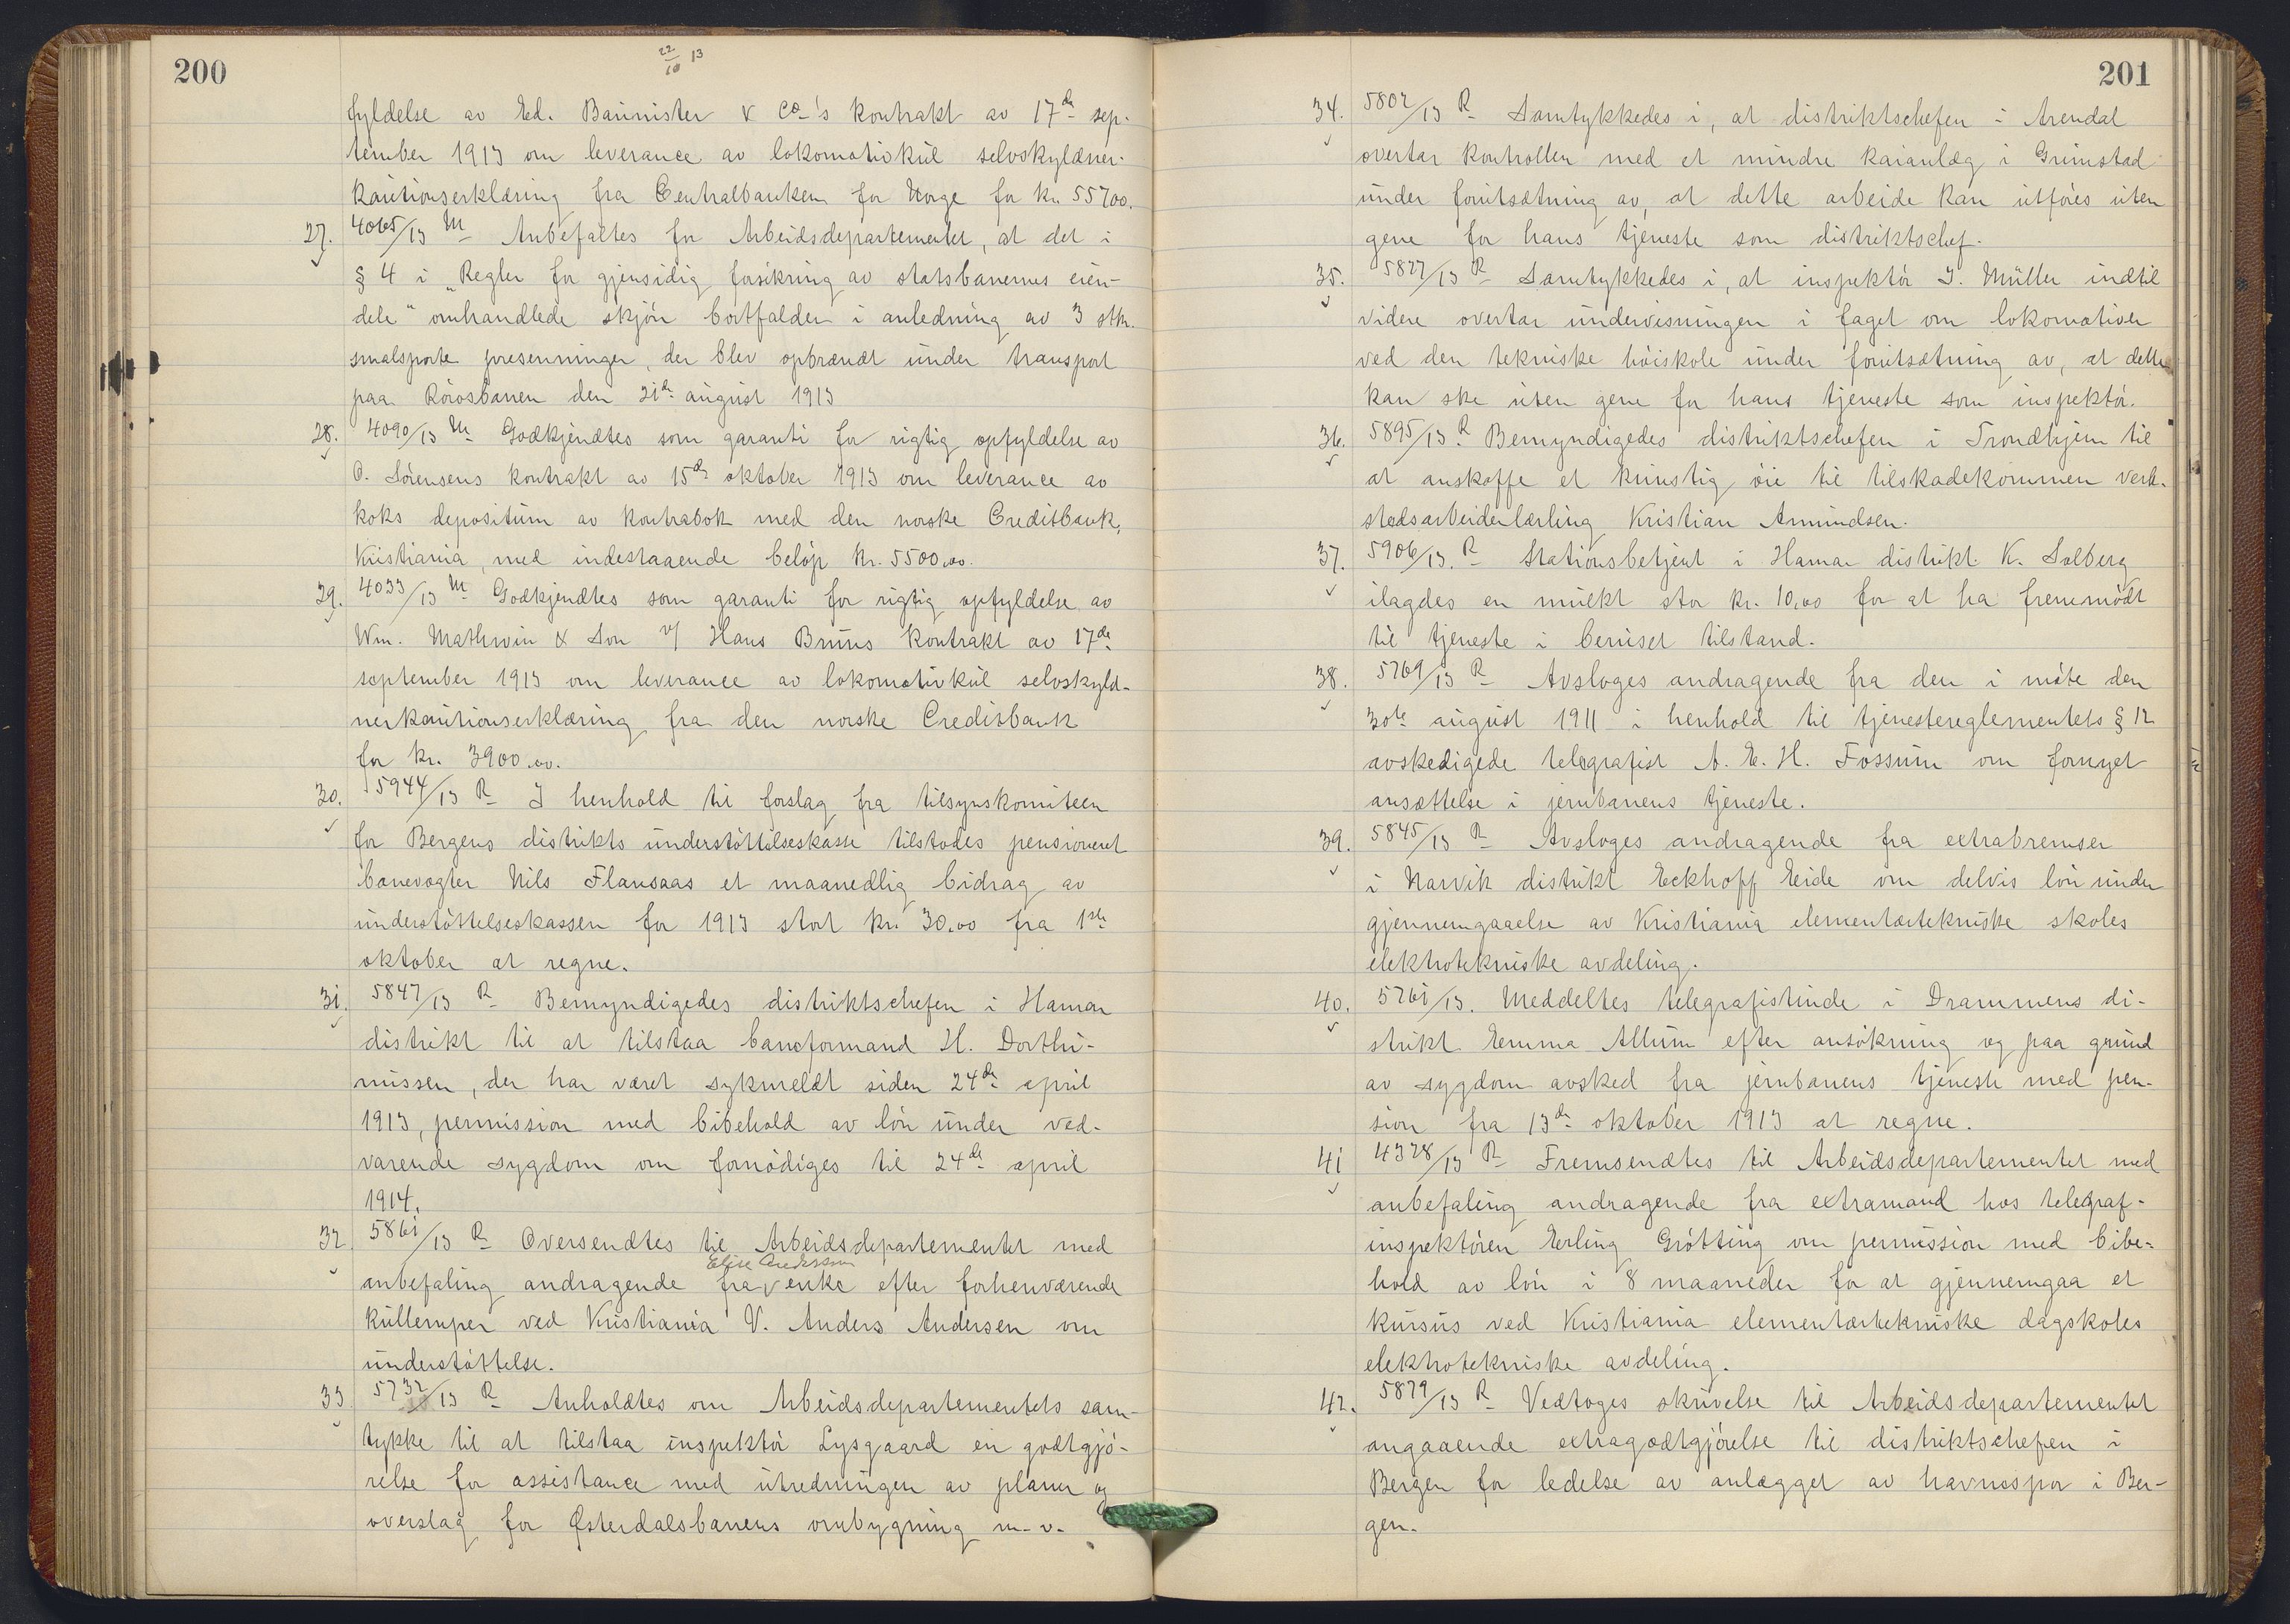 200
22/10 13
fyldelse av Ed. Bannister & Co's kontrakt av 17de sep-
tember 1913 om leverance av lokomotivkul selvskyldner-
kautionserklæring fra Centralbanken for Norge for kr. 55700.
27. 4065/13 M Anbefaltes for Arbeidsdepartementet, at det i
§ 4 i „Regler for gjensidig forsikring av statsbanernes eien-
dele" omhandlede skjøn bortfalder i anledning av 3 stk.
smalsporte presenninger, der blev opbrændt under transport
paa Rørosbanen den 21de august 1913
28. 4090/13 M Godkjendtes som garanti for rigtig opfyldelse av
O. Sørensens kontrakt av 15de oktober 1913 om leverance av
koks depositum av kontrabok med den norske Creditbank,
Kristiania, med indestaaende beløp kr. 5500.00.
29. 4033/13 M Godkjendtes som garanti for rigtig opfyldelse av
Wm. Mathwin & Son v/ Hans Bruns kontrakt av 17de
september 1913 om leverance av lokomotivkul selvskyld-
nerkautionserklæring fra den norske Creditbank
for kr. 3900.00.
30. 5944/13 R I henhold til forslag fra tilsynskomiteen
for Bergens distrikts understøttelseskasse tilstodes pensioneret
banevogter Nils Flansaas et maanedlig bidrag av
understøttelseskassen for 1913 stort kr. 30.00 fra 1ste
oktober at regne.
31. 5847/13 R Bemyndigedes distriktschefen i Hamar
distrikt til at tilstaa baneformand H. Dorthi-
nussen, der har været sykmeldt siden 24de april
1913, permission med bibehold av løn under ved-
varende sygdom om fornødiges til 24de april
1914.
32. 5861/13 R Oversendtes til Arbeidsdepartementet med
Elise Andersson
anbefaling andragende fra enke efter forhenværende
kullemper ved Kristiania V. Anders Andersen om
understøttelse.
33. 5732/13 R Anholdtes om Arbeidsdepartementets sam-
tykke til at tilstaa inspektør Lysgaard en godtgjø-
relse for assistance med utredningen av planer og
overslag for Østerdalsbanens ombygning m.v.
201
34. 5802/13 R Samtykkedes i, at distriktschefen i Arendal
overtar kontrollen med et mindre kaianlæg i Grimstad
under forutsætning av, at dette arbeide kan utføres uten
gene for hans tjeneste som distriktschef.
35. 5827/13 R Samtykkedes i, at inspektør J. Müller indtil
videre overtar undervisningen i faget om lokomotiver
ved den tekniske høiskole under forutsætning av, at dette
kan ske uten gene for hans tjeneste som inspektør.
36. 5895/13 R Bemyndigedes distriktschefen i Trondhjem til
at anskaffe et kunstig øie til tilskadekommen verk-
stedsarbeiderlærling Kristian Amundsen.
37. 5906/13. R Stationsbetjent i Hamar distrikt K. Solberg
ilagdes en mulkt stor kr. 10,00 for at ha fremmødt
til tjeneste i beruset tilstand.
38. 5769/13 R Avsloges andragende fra den i møte den
30te august 1911 i henhold til tjenestereglementets § 12
avskedigede telegrafist A. E. H. Fossum om fornyet
ansættelse i jernbanens tjeneste.
39. 5845/13 R Avsloges andragende fra extrabremser
i Narvik distrikt Eckhoff Eide om delvis løn under
gjennemgaaelse av Kristiania elementærtekniske skoles
elektrotekniske avdeling.
40. 5761/13. Meddeltes telegrafistinde i Drammens di-
strikt Emma Allum efter ansøkning og paa grund
av sygdom avsked fra jernbanens tjeneste med pen-
sion fra 13de oktober 1913 at regne.
41 4328/13 R Fremsendtes til Arbeidsdepartementet med
anbefaling andragende fra extramand hos telegraf-
inspektøren Erling Grøtting om permission med bibe-
hold av løn i 8 maaneder for at gjennemgaa et
kursus ved Kristiania elementærtekniske dagskoles
elektrotekniske avdeling.
42. 5879/13 R Vedtoges skrivelse til Arbeidsdepartementet
angaaende extragodtgjørelse til distriktschefen i
Bergen for ledelse av anlægget av havnespor i Ber-
gen.